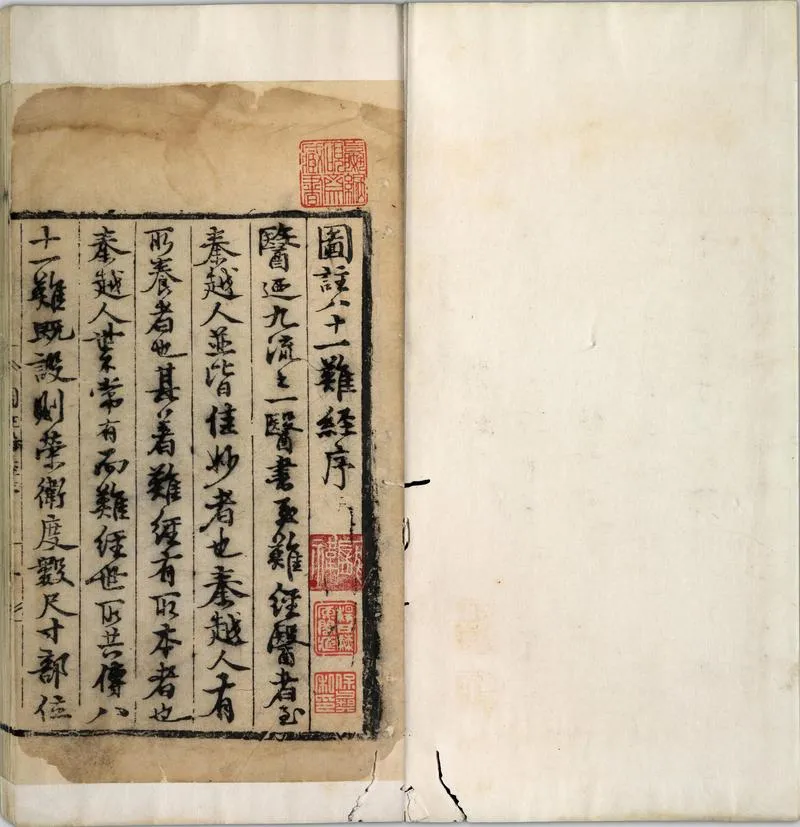 嬴縮硯齋藏書
圖註八十一難經序
保彝私印
醫迺九流之一醫書至難經醫者至
秦越人並皆佳妙者也秦越人有
所養者也其著難經有所本者也
秦越人世不常有而難經世所共傳八
十一難既設則榮衛度數尺寸部位